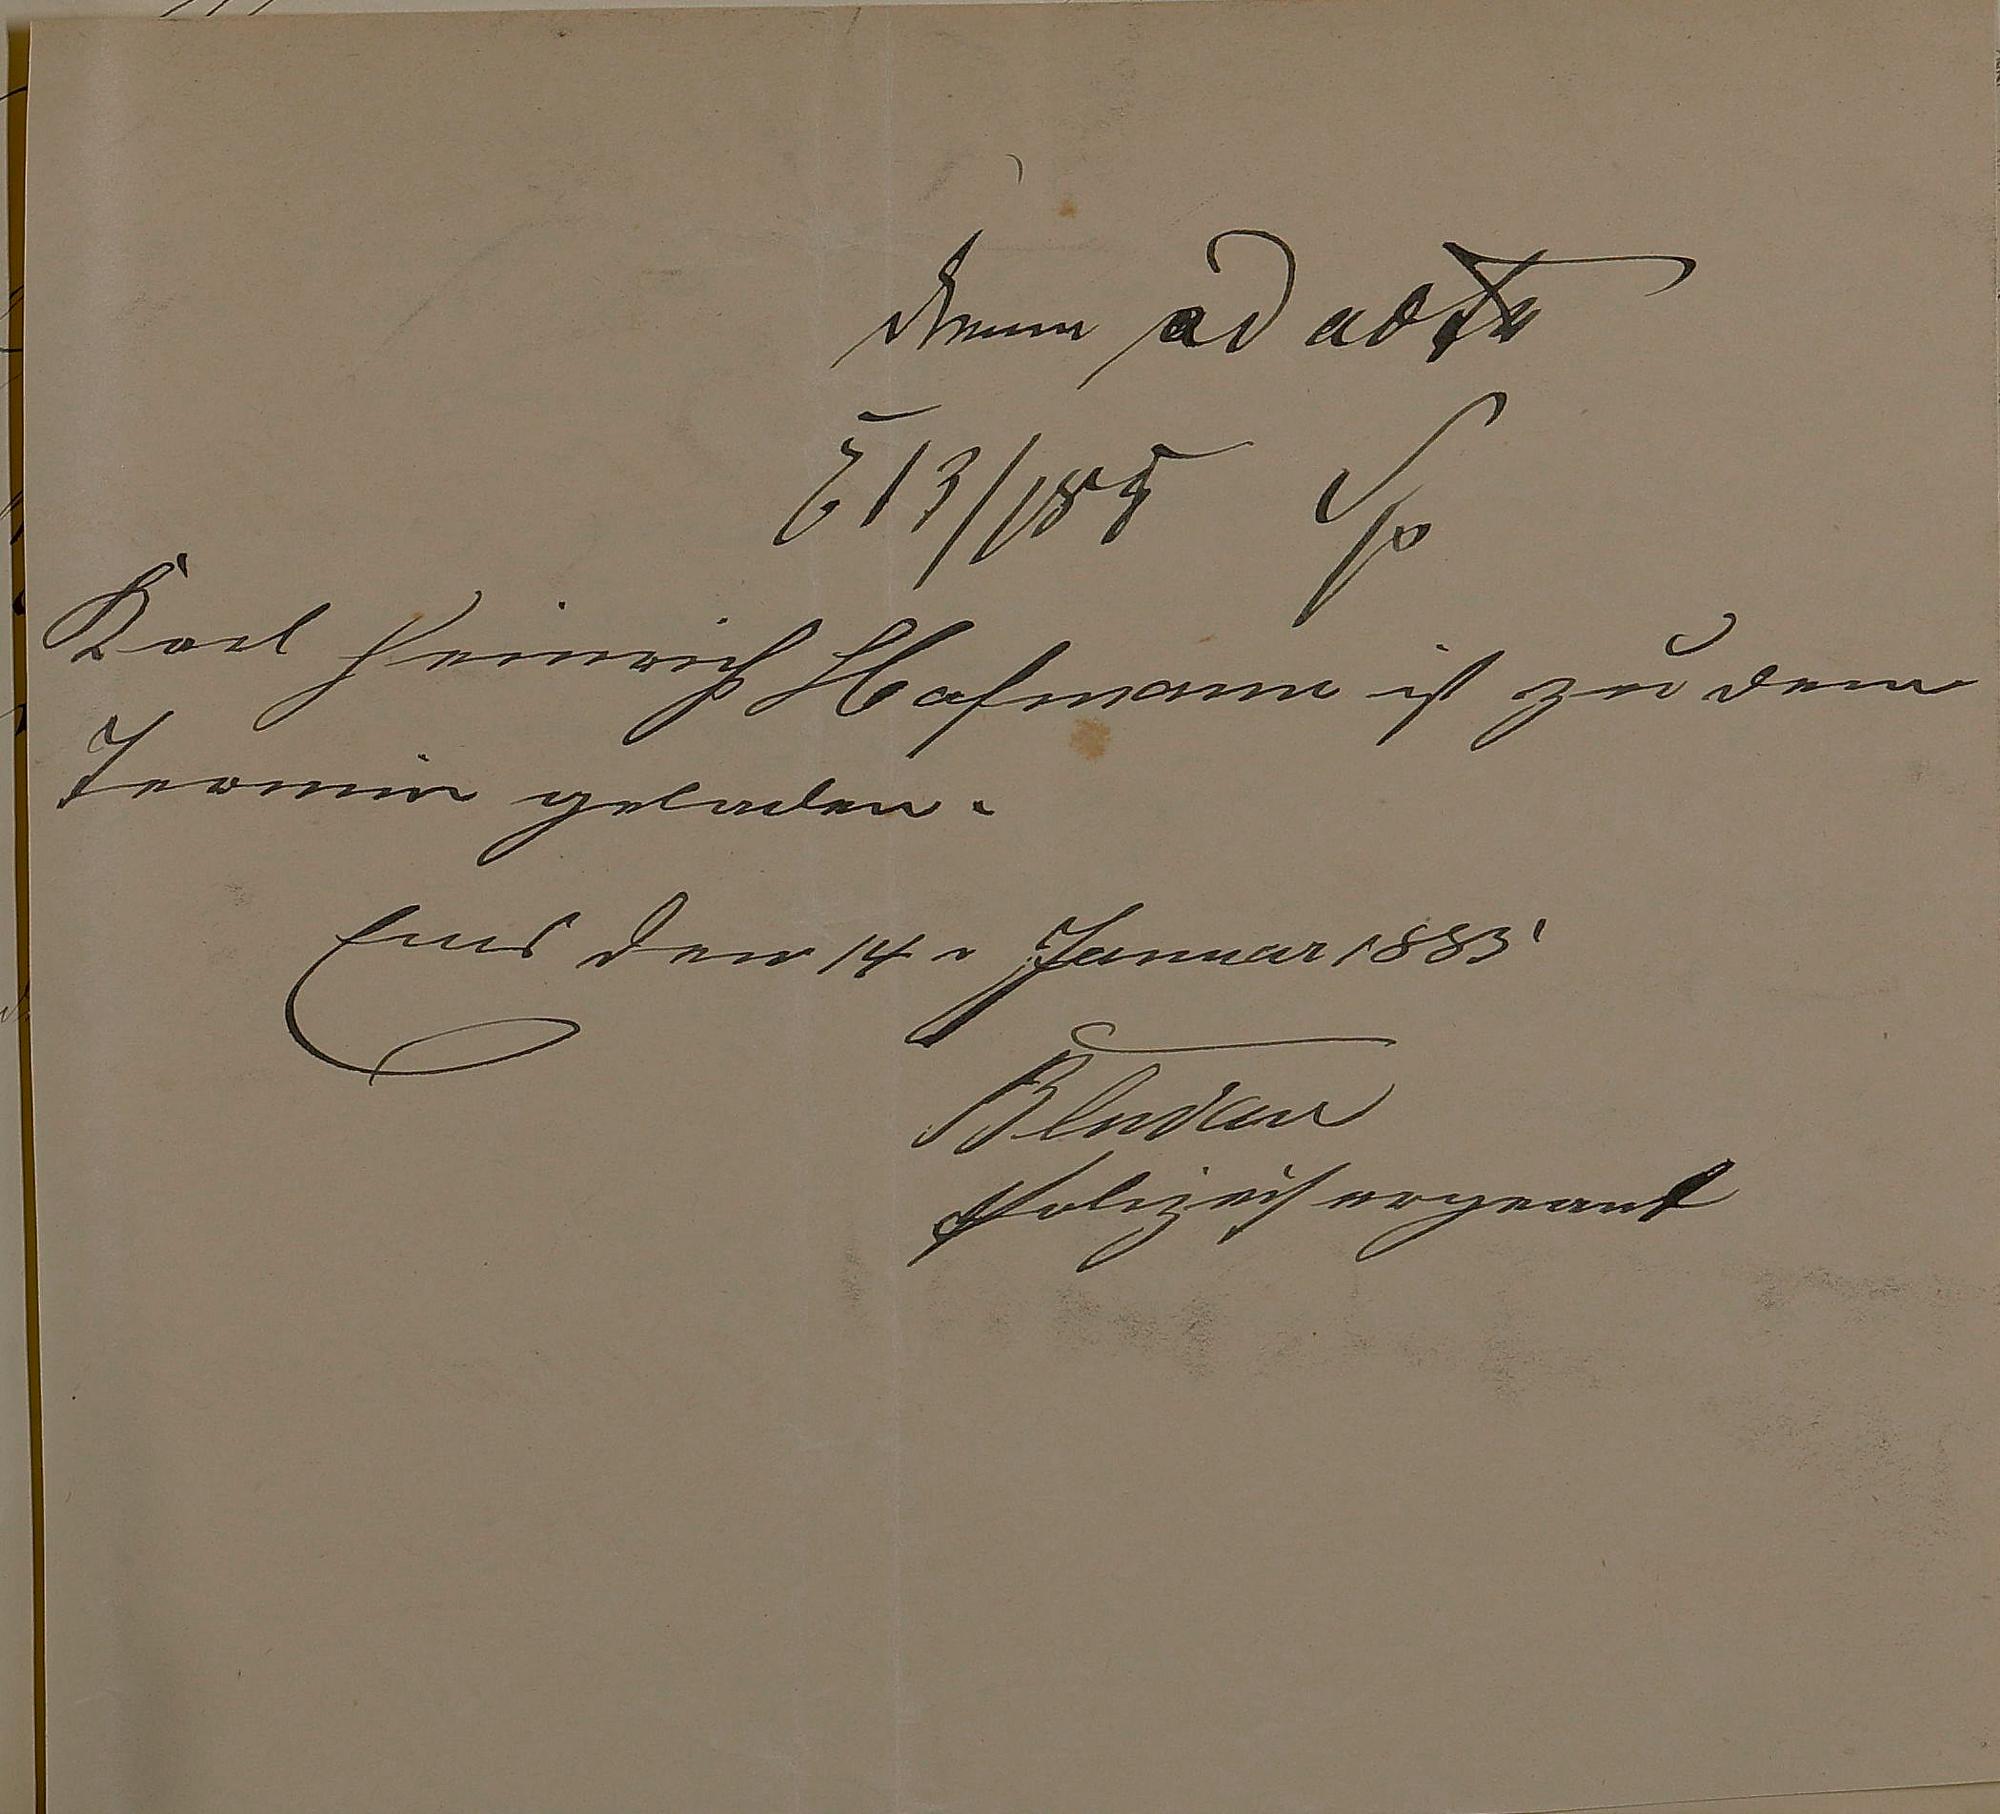 denn ad acta
E 13/188
Karl Heinrich Hofmann ist zu dem
Termin geladen.
Ems den 14. Januar 1883
Polizeisergeant